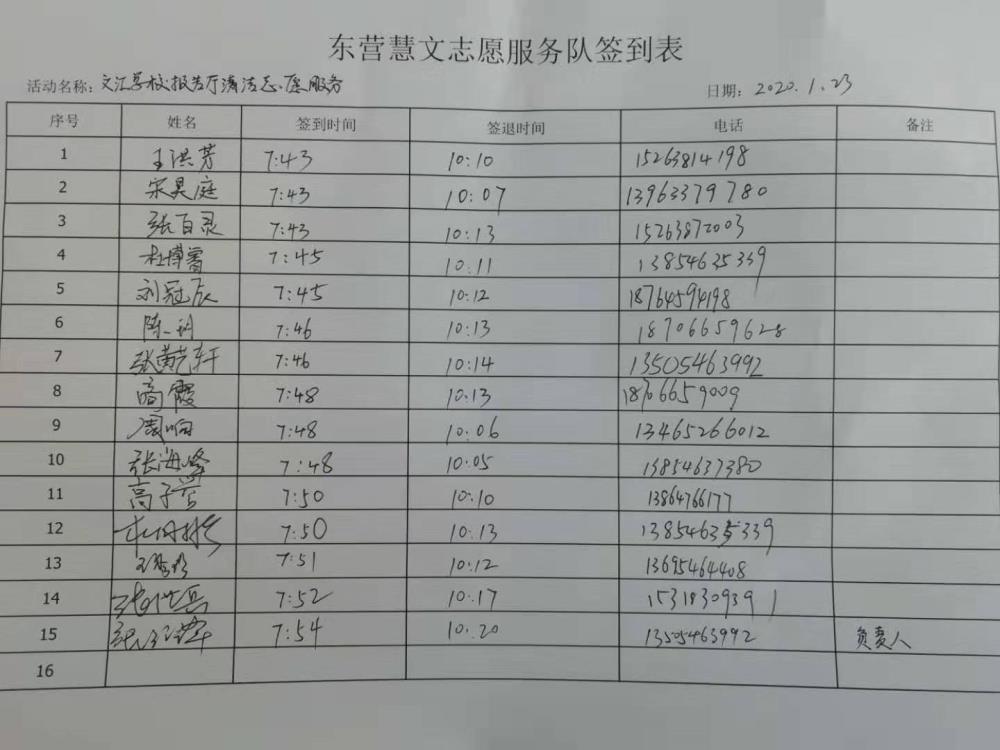 东营慧文志愿服务队签到表
活动名称：文汇学校报告厅清洁志愿服务 日期：2020.1.23
序号 姓名 签到时间 签退时间 电话 备注
1 王洪芳 7:43 10:10 15263814198
2 宋昊庭 7:43 10:07 13963379780
3 张百灵 7:43 10:13 15263872003
4 杜博睿 7:45 10:11 13854635339
5 刘冠辰 7:45 10:12 18764594198
6 陈一钊 7:46 10:13 18706659628
7 张黄艺轩 7:46 10:14 13505463992
8 商霞 7:48 10:13 18706659009
9 周响 7:48 10:06 13465266012
10 张海峰 7:48 10:05 13854637380
11 高子 7:50 10:10 13864766177
12 7:50 10:13 13854635339
13 7:51 10:12 13695464408
14 7:52 10:17 15318309391
15 7:54 10:20 13505463992 负责人
16